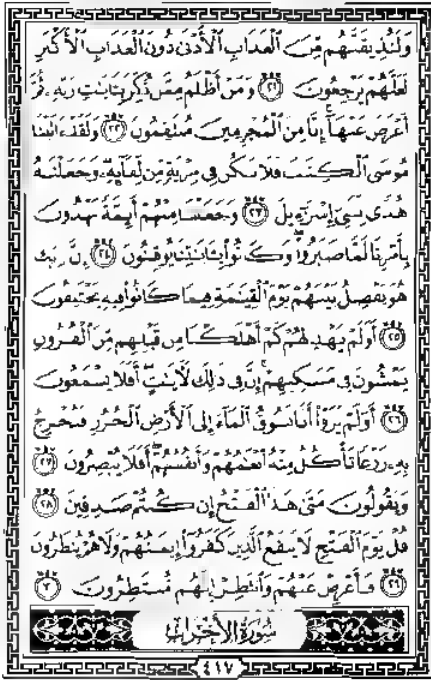 وَلَنُذِيقَنَّهُم مِّنَ ٱلْعَذَابِ ٱلْأَدْنَىٰ دُونَ ٱلْعَذَابِ ٱلْأَكْبَرِ
لَعَلَّهُمْ يَرْجِعُونَ ٢١ وَمَنْ أَظْلَمُ مِمَّن ذُكِّرَ بِـَٔايَـٰتِ رَبِّهِۦ ثُمَّ
أَعْرَضَ عَنْهَآ إِنَّا مِنَ ٱلْمُجْرِمِينَ مُنتَقِمُونَ ٢٢ وَلَقَدْ ءَاتَيْنَا
مُوسَى ٱلْكِتَـٰبَ فَلَا تَكُن فِى مِرْيَةٍ مِّن لِّقَآئِهِۦ وَجَعَلْنَـٰهُ
هُدًى لِّبَنِىٓ إِسْرَٰٓءِيلَ ٢٣ وَجَعَلْنَا مِنْهُمْ أَئِمَّةً يَهْدُونَ
بِأَمْرِنَا لَمَّا صَبَرُوا۟ وَكَانُوا۟ بِـَٔايَـٰتِنَا يُوقِنُونَ ٢٤ إِنَّ رَبَّكَ
هُوَ يَفْصِلُ بَيْنَهُمْ يَوْمَ ٱلْقِيَـٰمَةِ فِيمَا كَانُوا۟ فِيهِ يَخْتَلِفُونَ
٢٥ أَوَلَمْ يَهْدِ لَهُمْ كَمْ أَهْلَكْنَا مِن قَبْلِهِم مِّنَ ٱلْقُرُونِ
يَمْشُونَ فِى مَسَـٰكِنِهِمْ إِنَّ فِى ذَٰلِكَ لَـَٔايَـٰتٍ أَفَلَا يَسْمَعُونَ
٢٦ أَوَلَمْ يَرَوْا۟ أَنَّا نَسُوقُ ٱلْمَآءَ إِلَى ٱلْأَرْضِ ٱلْجُرُزِ فَنُخْرِجُ
بِهِۦ زَرْعًا تَأْكُلُ مِنْهُ أَنْعَـٰمُهُمْ وَأَنفُسُهُمْ أَفَلَا يُبْصِرُونَ ٢٧
وَيَقُولُونَ مَتَىٰ هَـٰذَا ٱلْفَتْحُ إِن كُنتُمْ صَـٰدِقِينَ ٢٨
قُلْ يَوْمَ ٱلْفَتْحِ لَا يَنفَعُ ٱلَّذِينَ كَفَرُوٓا۟ إِيمَـٰنُهُمْ وَلَا هُمْ يُنظَرُونَ
٢٩ فَأَعْرِضْ عَنْهُمْ وَٱنتَظِرْ إِنَّهُم مُّنتَظِرُونَ ٣٠
سُورَةُ الْأَحْزَابِ
٤١٧